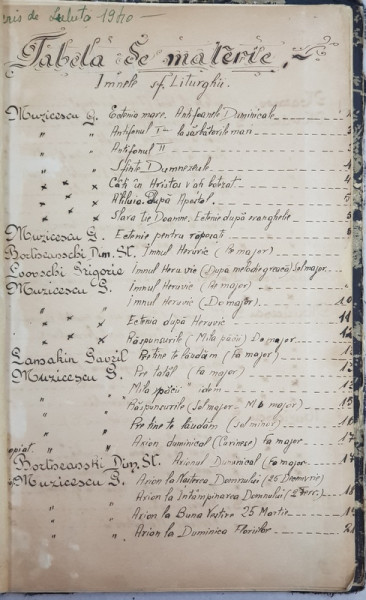 de Leluta 1940 -
Tabela de materie
Imnele sf. Liturghii.
Muzicescu G. Ectenia mare. Antifoanele Duminicale
" " Antifonul I la sărbătorile mari 3
" " Antifonul II 3
" " Sfinte Dumnezeule 4
" " Câți în Hristos v'ați botezat 4
" " Aliluia după Apostol 5
" " Slava Ție Doamne. Ectenie după evanghelie 5
Muzicescu G. Ectenie pentru răposați 6
Bortneanschi Dim. St. Imnul Heruvic (Re major)
Lvovschi Grigorie Imnul Heruvic (După melodie greacă) Sol major
Muzicescu G. Imnul Heruvic (Re major)
" " Imnul Heruvic (Do major) 10
" " Ectenia după Heruvic 11
" " Răspunsurile (Mila păcii) Do major 12
Lansakin Gavriil Pre tine te lăudăm (Fa major)
Muzicescu G. Pre tatăl (Fa major)
" " "Mila păcii" idem
" " Răspunsurile (Sol major - Mi b major) 15
" " Pre tine te lăudăm (Sol minor)
" " Axion duminical (Varinese) Fa major 17
Bortneansski Dim. St. Axionul Duminical (Fa major)
Muzicescu G. Axion la Nașterea Domnului (25 Decemvrie)
" " Axion la Întâmpinarea Domnului (2 Febr.)
" " Axion la Buna Vestire 25 Martie
" " Axion la Duminica Floriilor